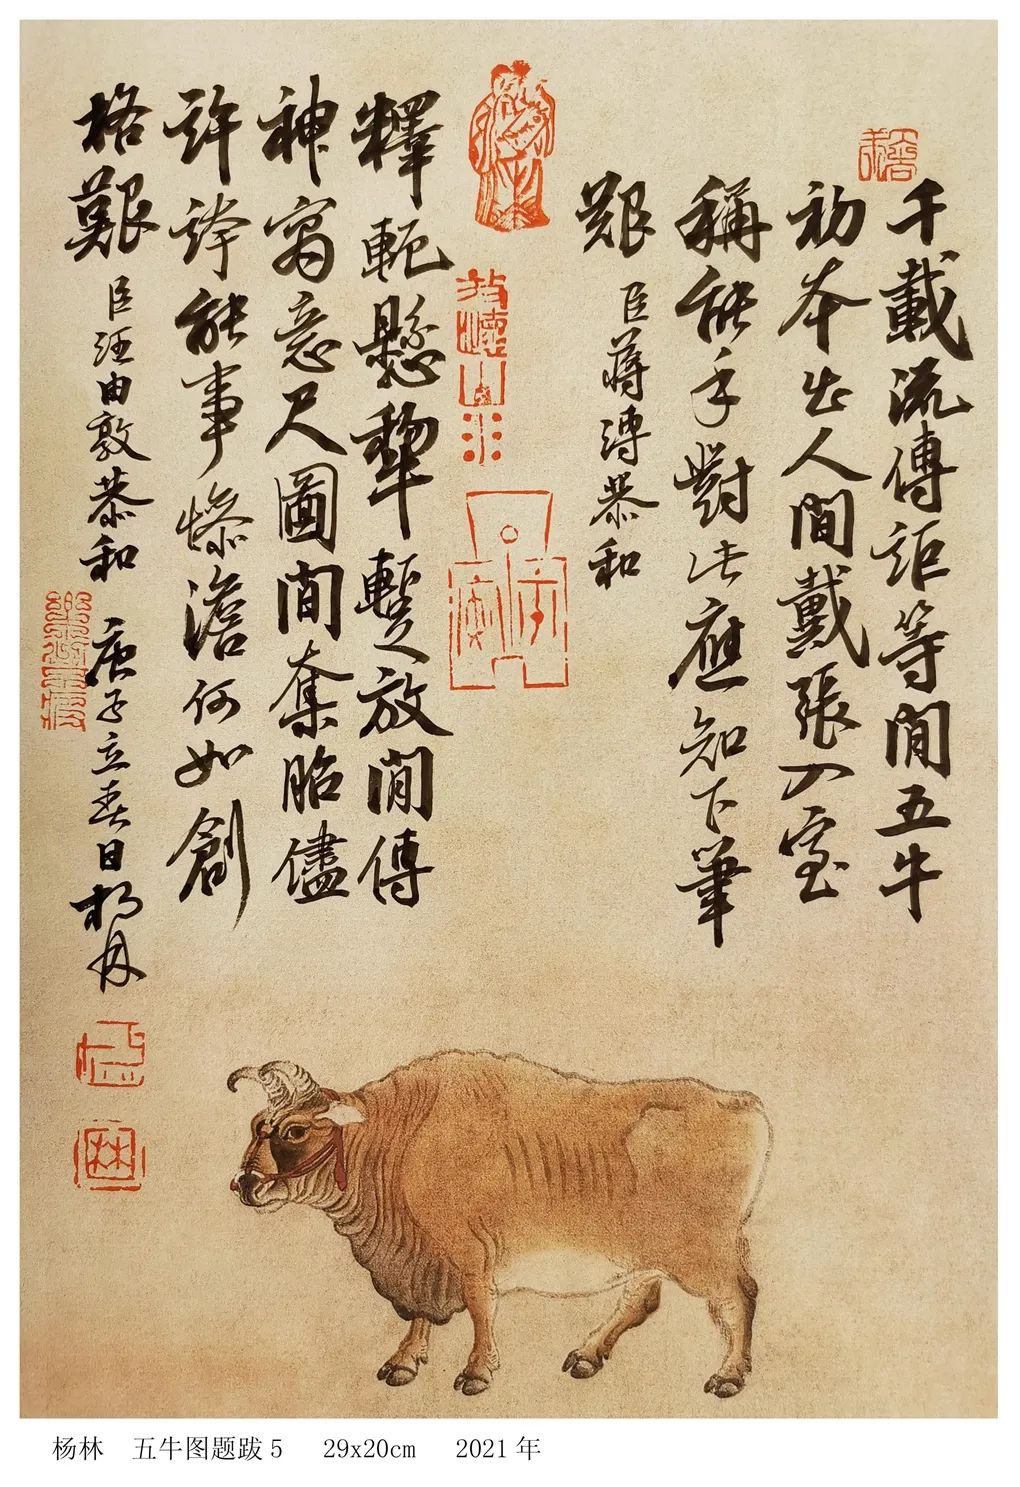 千載流傳詎等閒五牛
初本出人間戴張入室
稱能手對此應知下筆
艱 臣蔣溥恭和
釋軛懸犂暫放閒傳
神寓意尺圖間奪胎儘
許誇能事慘澹何如創
格艱 臣汪由敦恭和 庚子立春日楊林
杨林 五牛图题跋5 29x20cm 2021年